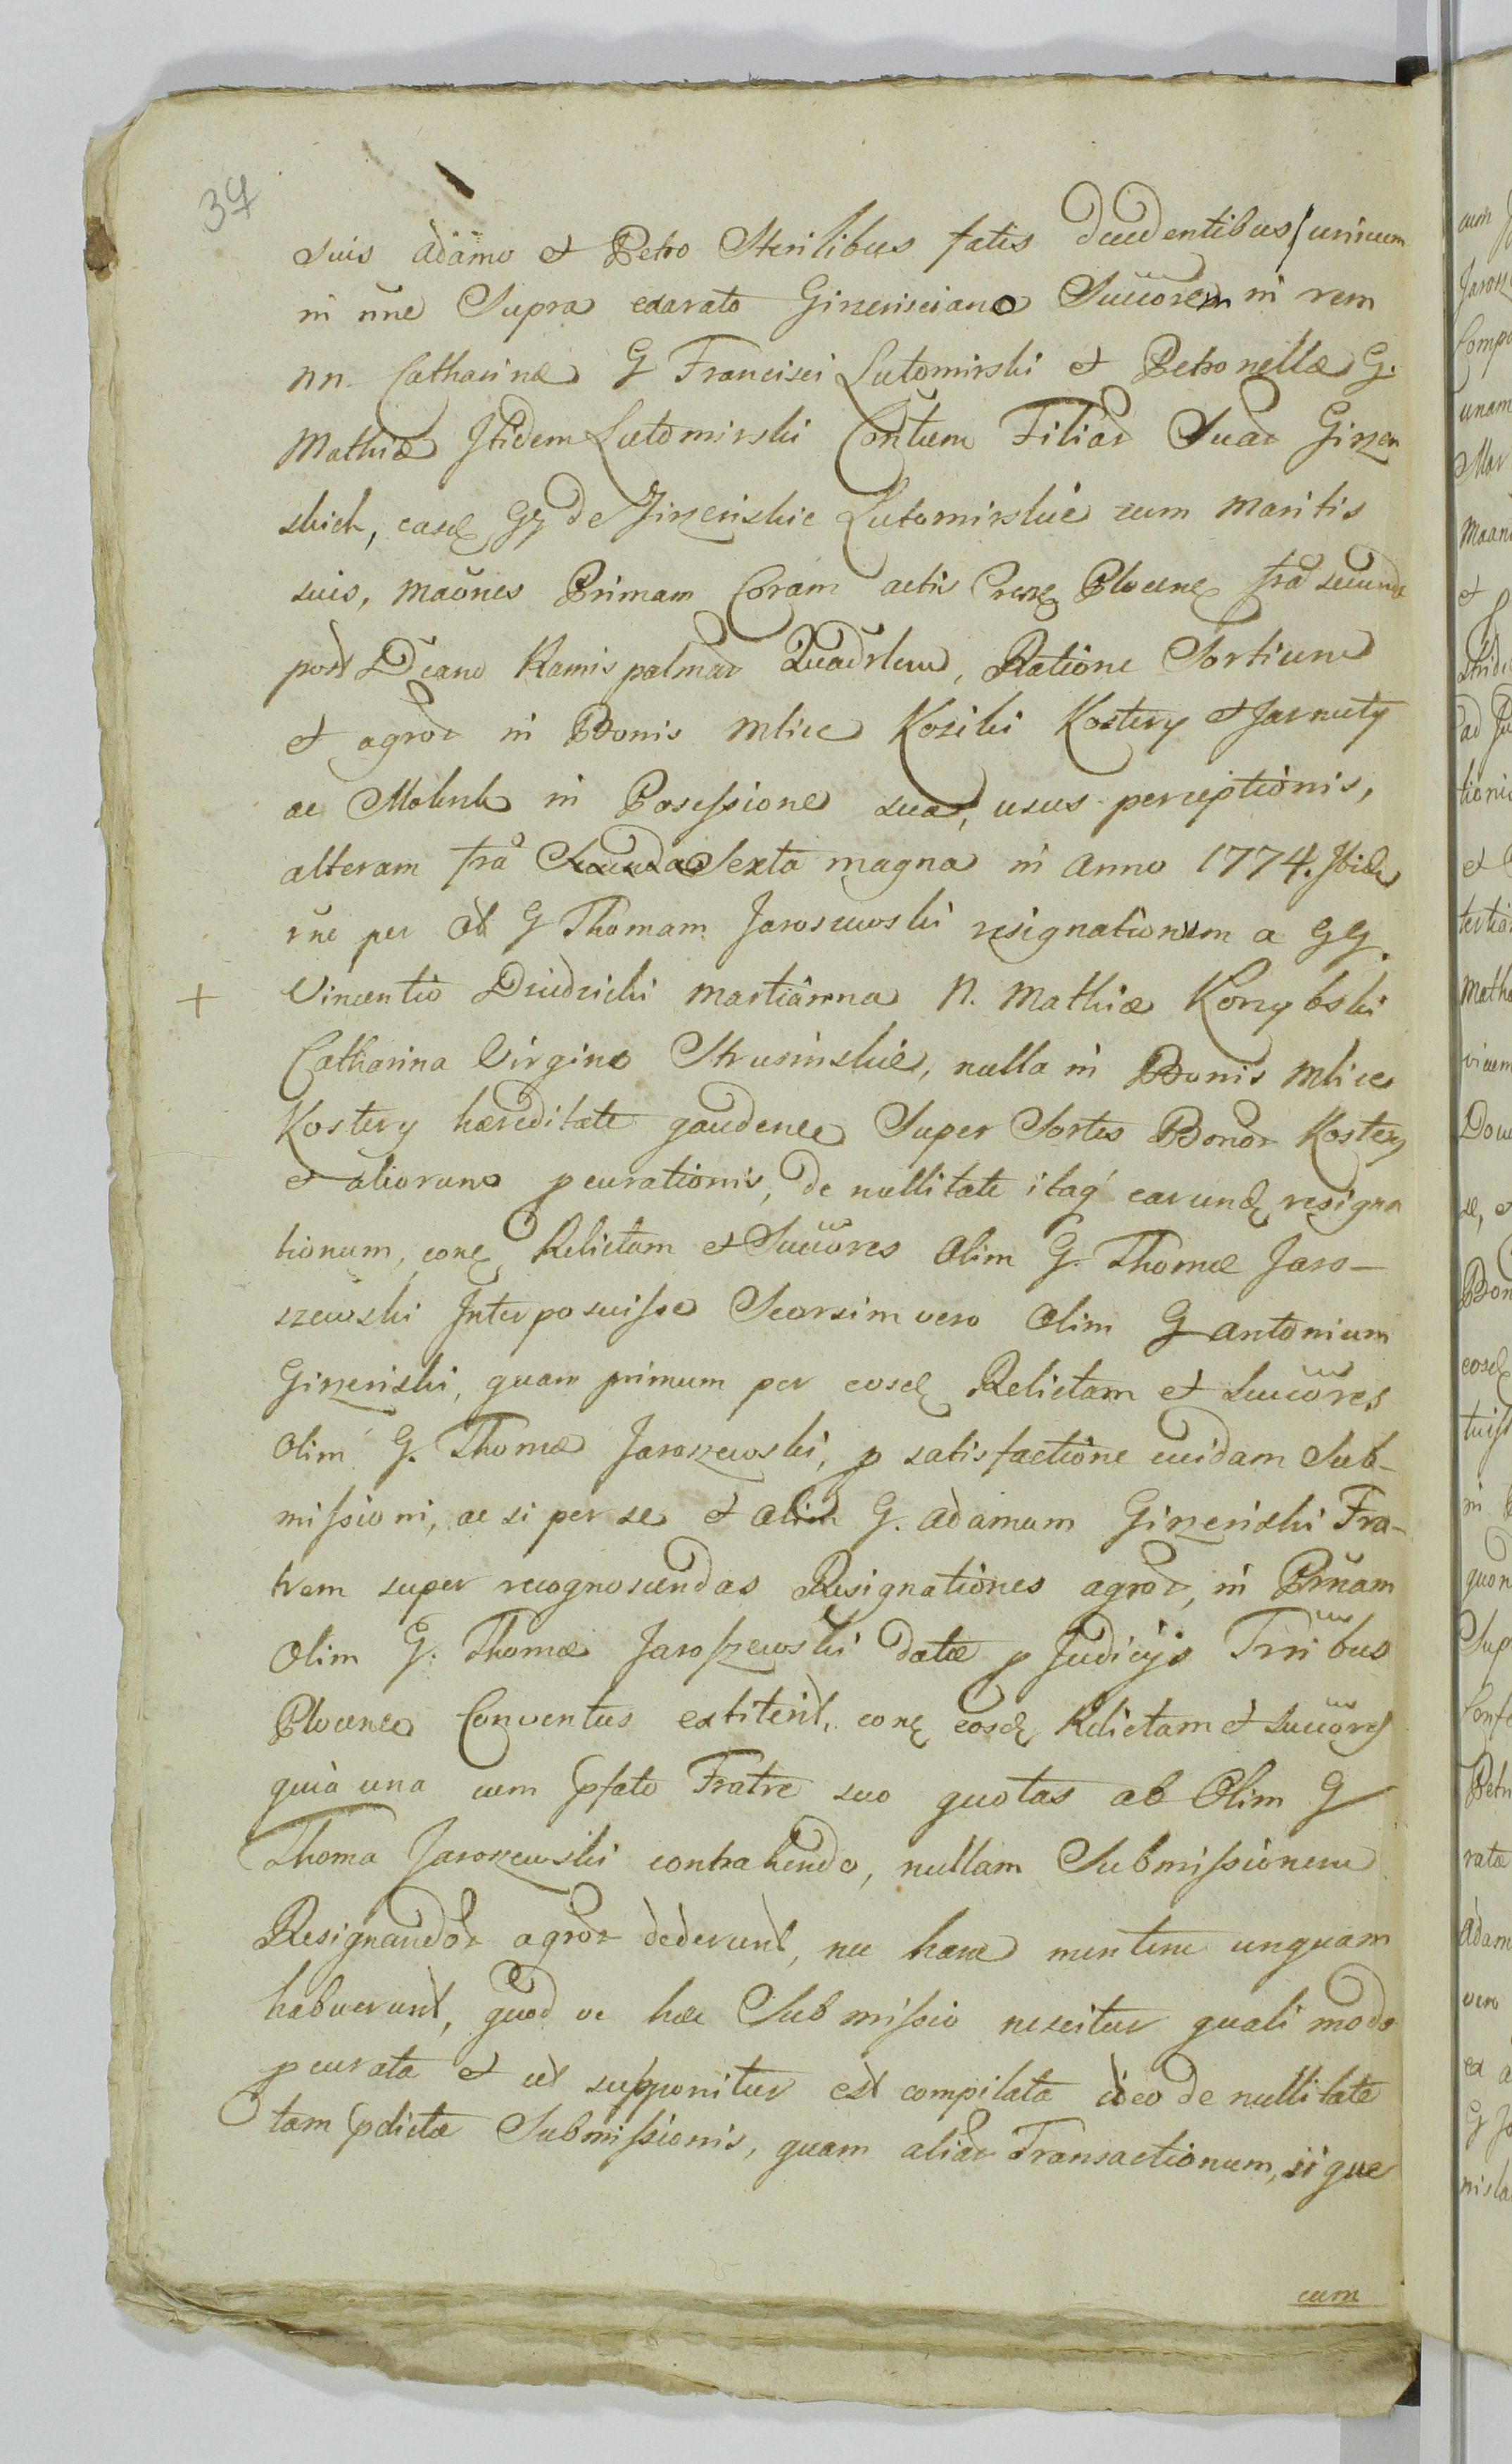 34
suis Adamo et Petro Sterilibus fatis decedentibus / unicum
in nne Supra exarato Ginzerisciano Succorem in rem
nn. Catharinæ G Francisci Lutomirski et Petronellæ G.
Mathiæ Itidem Lutomirski Contum Filiar Suar Ginzer
skich, easd GG de Ginzerískie Lutomirskie cum maritis
suis, maones Primam Coram actis Plocen fra secunda
post Dcano Ramis palmar Quadrlem, Ratione Sortium
et agror in Bonis mlice Kosiki Kostery et Jarnuty
ac Molenk in Posessione sua, usus perceptionis,
alteram fra Secunda Sexta magna in Anno 1774. Ibide
rne per Ol G Thomam Jaroszewski resignationem a GG.
+ Vincentio Dziedzicki martianna N. Mathiæ Korzybski
Catharina Virgine Strusinskie, nulla in Bonis mlice
Kostery hæreditate gaudence Super Sortes Bonor Kostery
et aliorum pcurationis, de nullitate itaq earund resigna
tionum, con Relictam et Succores Olim G. Thomæ Jaro-
szewski Interposuisse Seorsim vero Olim G Antonium
Ginzeriski, quam primum per eosd Relictam et Succores
Olim G. Thomæ Jaroszewski, p satisfactione cuidam Sub-
missioni, ac si per se et Olim G. Adamum Ginzeriski Fra-
trem super recognoscendas Resignationes agror, in Prnam
Olim G. Thomæ Jaroszewski datæ p Judicijs Trribus
Plocens Conventus extiterit, con eosd Relictam et Succores
quia una cum pfato Fratre suo quotas ab Olim G
Thoma Jaroszewski contrahendo, nullam Submissionem
Resignandor agror dederunt, nec hanc mentem unquam
habuerunt, quod ve hæc Submissio nescitur quali modo
pcurata et ut supponitur est compilata ideo de nullitate
tam pdictæ Submissionis, quam aliar Transactionum, si quæ
cum